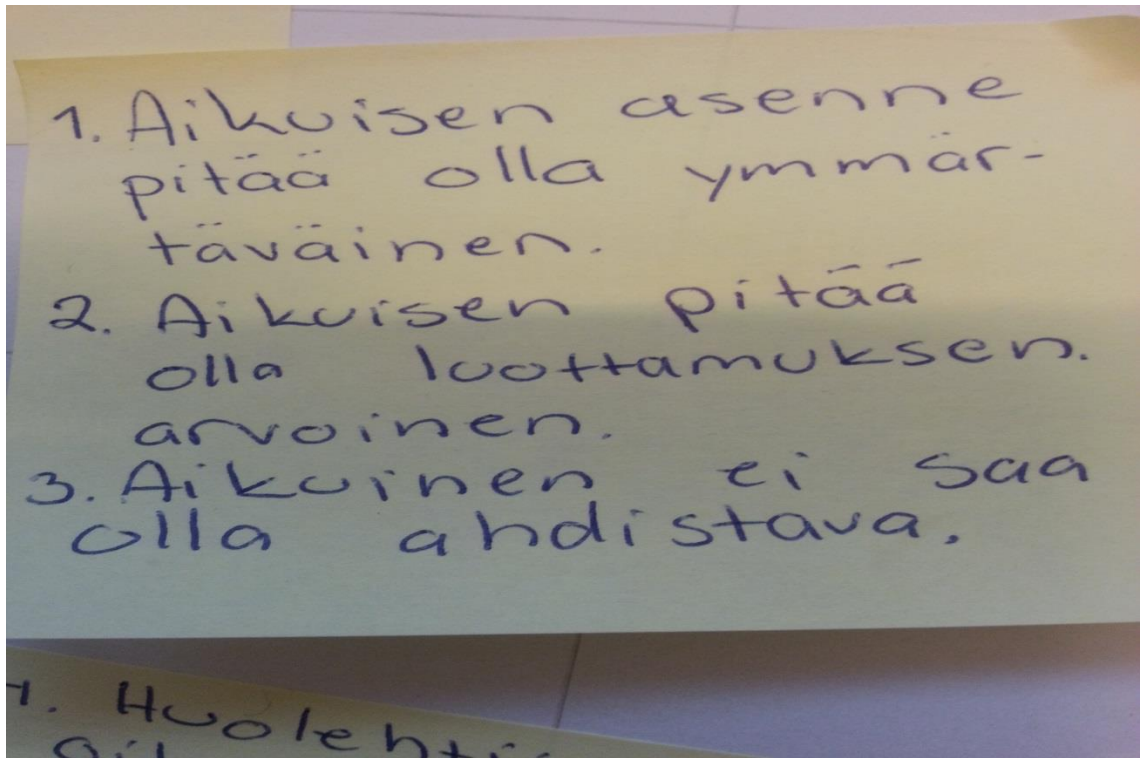 1. Aikuisen asenne
pitää olla ymmär-
täväinen.
2. Aikuisen pitää
olla luottamuksen.
arvoinen.
3. Aikuinen ei saa
olla ahdistava.
1. Huolehti